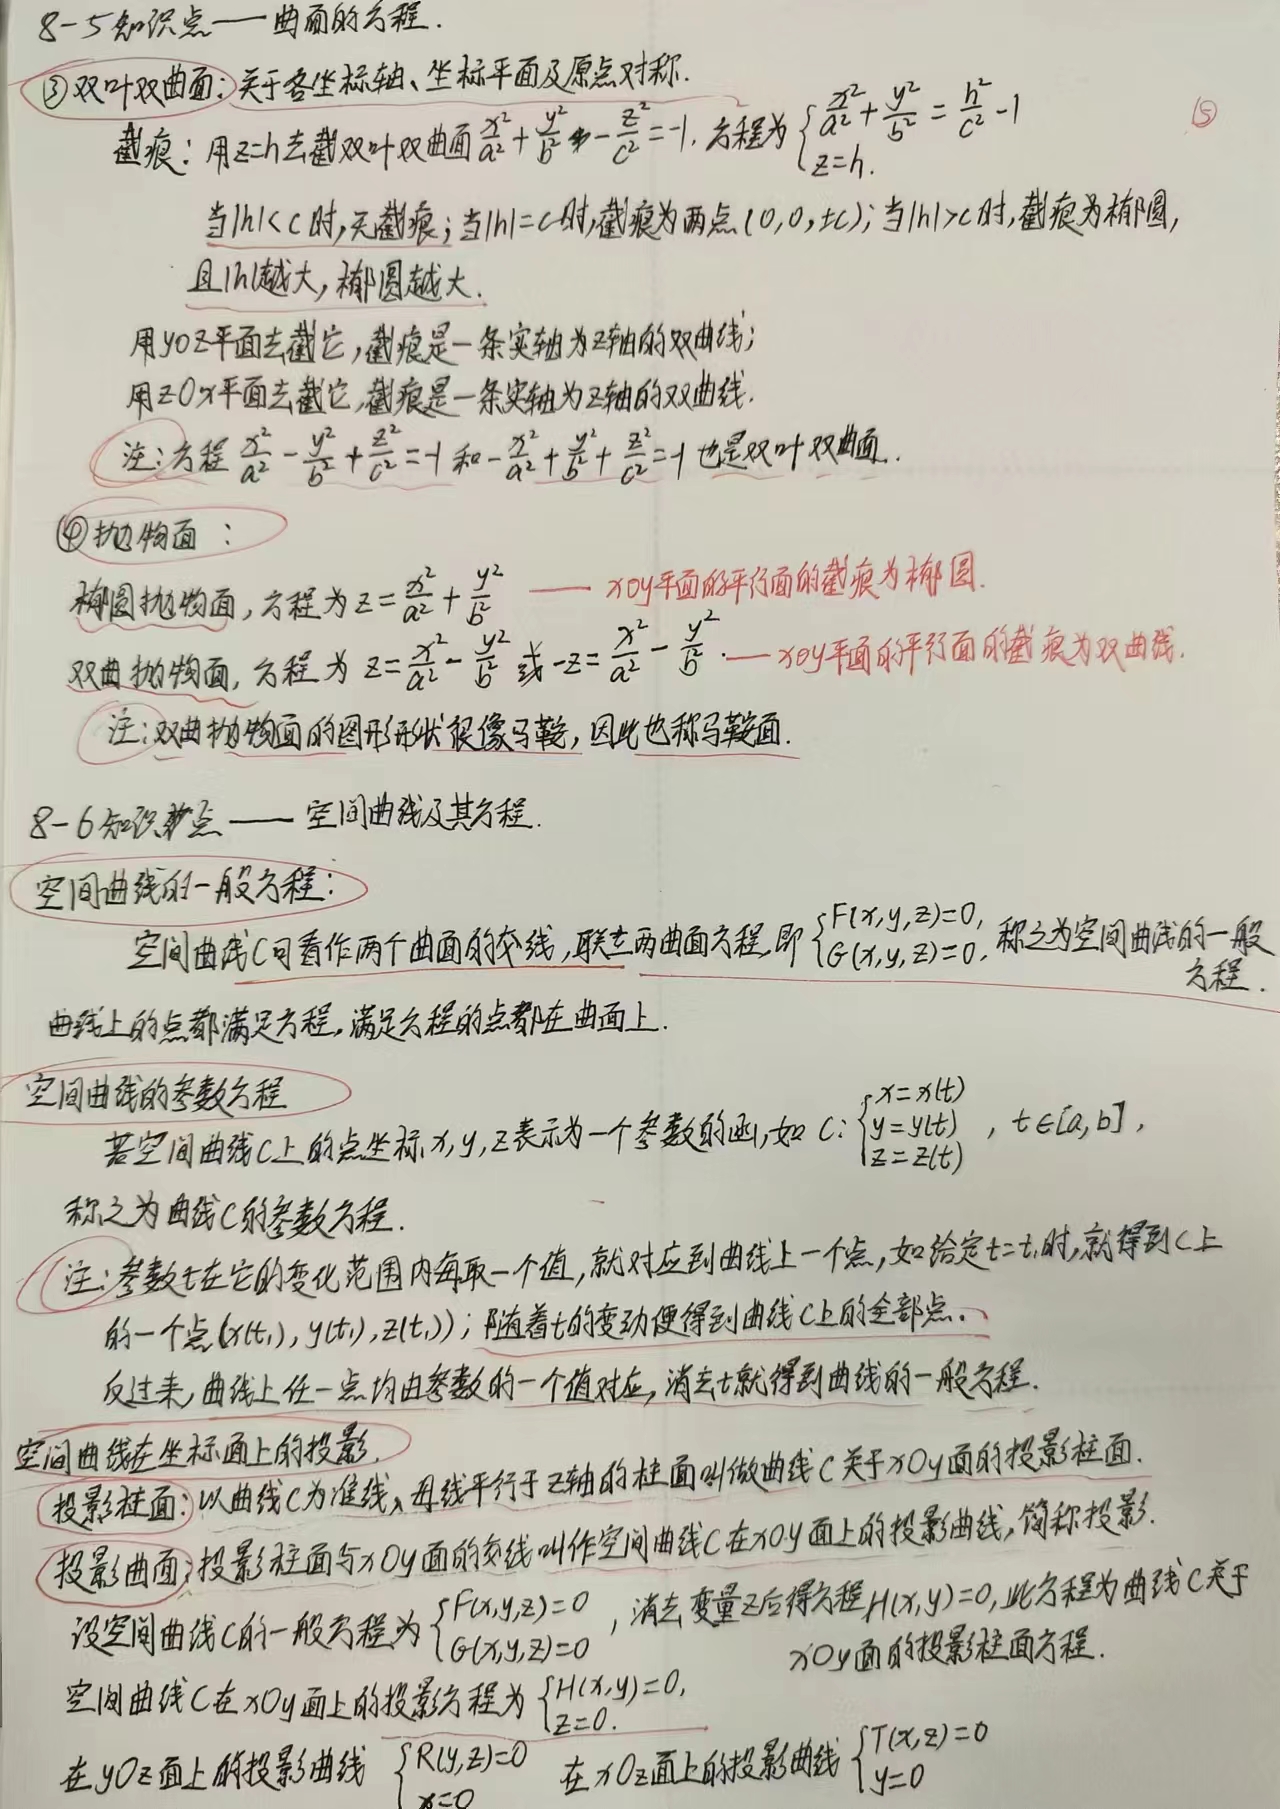 8-5知识点——曲面的方程.
⑤
③双叶双曲面:关于各坐标轴、坐标平面及原点对称.
截痕:用z=h去截双叶双曲面x²/a²+y²/b²-z²/c²=-1,方程为{x²/a²+y²/b²=h²/c²-1
z=h.
当|h|<c时,无截痕;当|h|=c时,截痕为两点(0,0,±c);当|h|>c时,截痕为椭圆,
且|h|越大,椭圆越大.
用yOz平面去截它,截痕是一条实轴为z轴的双曲线;
用zOx平面去截它,截痕是一条实轴为z轴的双曲线.
注:方程x²/a²-y²/b²+z²/c²=-1和-x²/a²+y²/b²+z²/c²=-1也是双叶双曲面.
④抛物面:
椭圆抛物面,方程为z=x²/a²+y²/b² ——xOy平面的平行面的截痕为椭圆.
双曲抛物面,方程为z=x²/a²-y²/b²或-z=x²/a²-y²/b².——xOy平面的平行面的截痕为双曲线.
注:双曲抛物面的图形形状很像马鞍,因此也称马鞍面.
8-6知识点——空间曲线及其方程.
空间曲线的一般方程:
空间曲线C可看作两个曲面的交线,联立两曲面方程,即{F(x,y,z)=0,
G(x,y,z)=0,称之为空间曲线的一般
方程.
曲线上的点都满足方程,满足方程的点都在曲面上.
空间曲线的参数方程
若空间曲线C上的点坐标x,y,z表示为一个参数的函,如C:{x=x(t)
y=y(t) , t∈[a,b],
z=z(t)
称之为曲线C的参数方程.
注:参数t在它的变化范围内每取一个值,就对应到曲线上一个点,如给定t=t₁时,就得到C上
的一个点(x(t₁),y(t₁),z(t₁));随着t的变动便得到曲线C上的全部点.
反过来,曲线上任一点均由参数的一个值对应,消去t就得到曲线的一般方程.
空间曲线在坐标面上的投影.
投影柱面:以曲线C为准线、母线平行于z轴的柱面叫做曲线C关于xOy面的投影柱面.
投影曲面:投影柱面与xOy面的交线叫作空间曲线C在xOy面上的投影曲线,简称投影.
设空间曲线C的一般方程为{F(x,y,z)=0
G(x,y,z)=0 ,消去变量z后得方程H(x,y)=0,此方程为曲线C关于
xOy面的投影柱面方程.
空间曲线C在xOy面上的投影方程为{H(x,y)=0,
z=0.
在yOz面上的投影曲线{R(y,z)=0
x=0 在xOz面上的投影曲线{T(x,z)=0
y=0